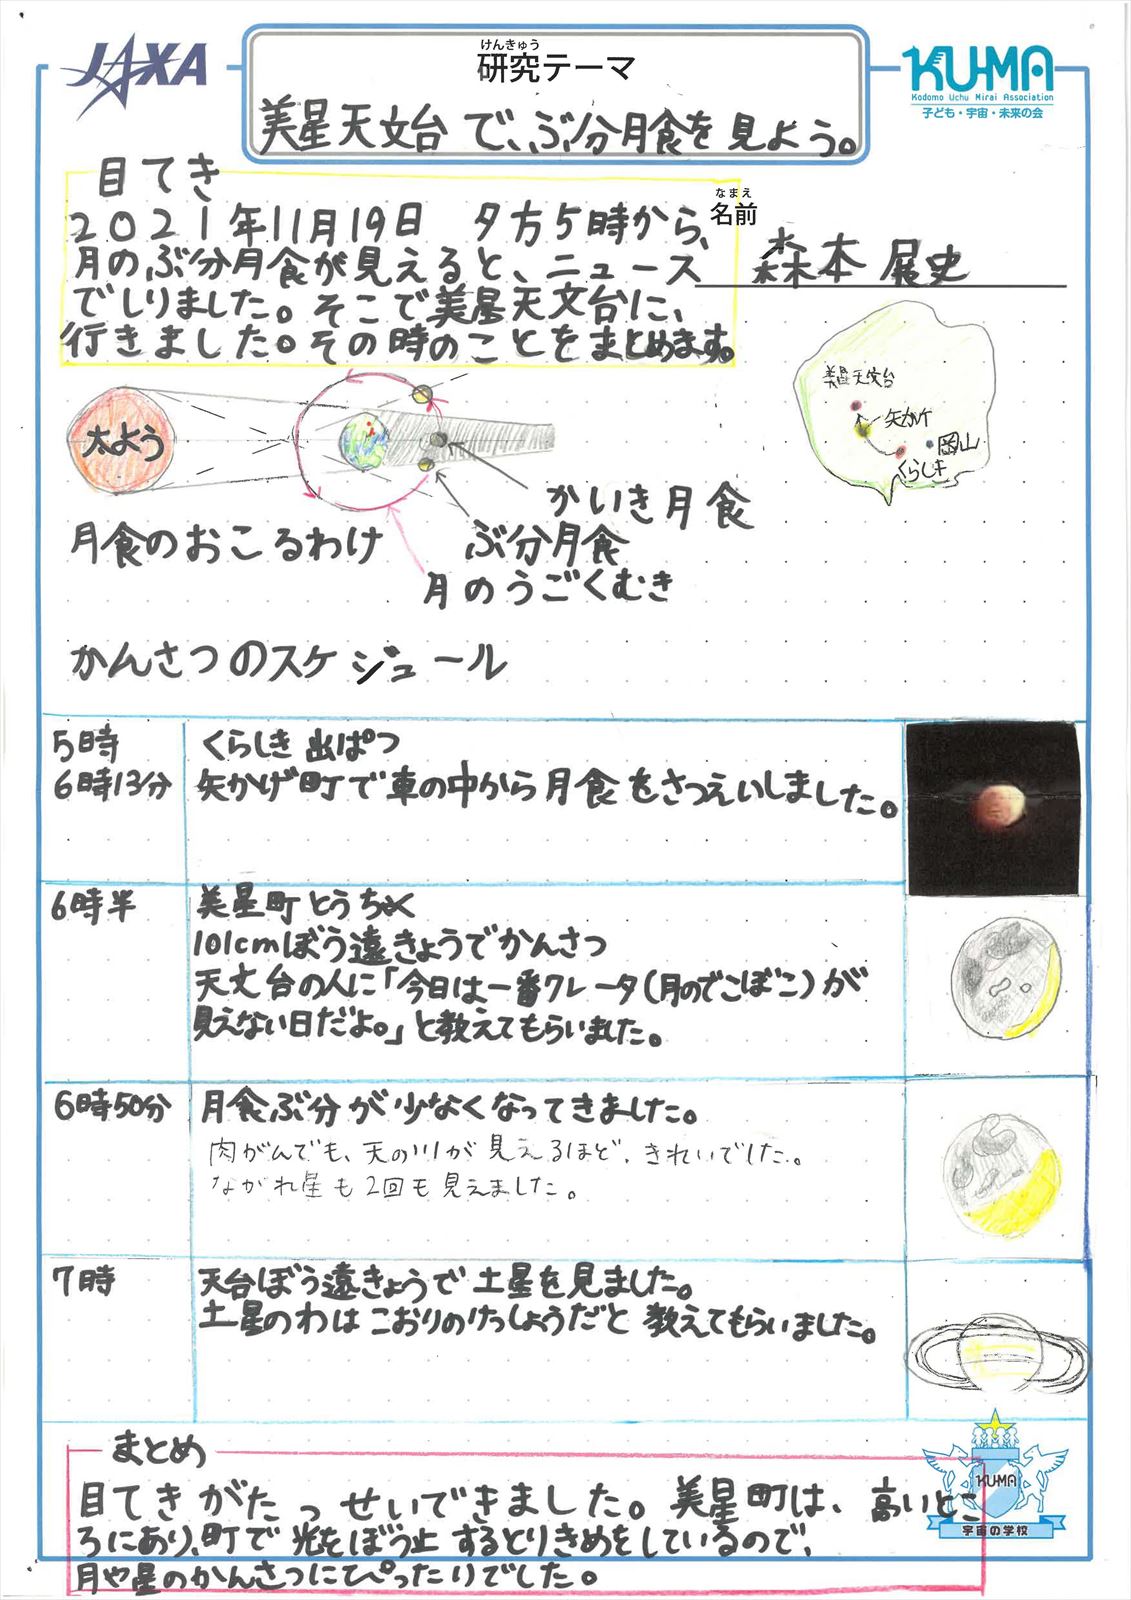 JAXA
けんきゅう
研究テーマ
KU-MA
Kodomo Uchu Mirai Association
子ども・宇宙・未来の会
美星天文台で、ぶ分月食を見よう。
目てき
2021年11月19日 夕方5時から、
月のぶ分月食が見えると、ニュース
でしりました。そこで美星天文台に、
行きました。その時のことをまとめます。
なまえ
名前
森本 展史
美星天文台
矢かげ
岡山
くらしき
太よう
かいき月食
ぶ分月食
月のうごくむき
月食のおこるわけ
かんさつのスケジュール
5時 くらしき出ぱつ
6時13分 矢かげ町で車の中から月食をさつえいしました。
6時半 美星町とうちゃく
101cmぼう遠きょうでかんさつ
天文台の人に「今日は一番クレータ(月のでこぼこ)が
見えない日だよ。」と教えてもらいました。
6時50分 月食ぶ分が少なくなってきました。
肉がんでも、天の川が見えるほど、きれいでした。
ながれ星も2回も見えました。
7時 天台ぼう遠きょうで土星を見ました。
土星のわはこおりのけっしょうだと教えてもらいました。
まとめ
目てきがたっせいできました。美星町は、高いとこ
ろにあり、町で光をぼう止するとりきめをしているので、
月や星のかんさつにぴったりでした。
KU-MA
宇宙の学校